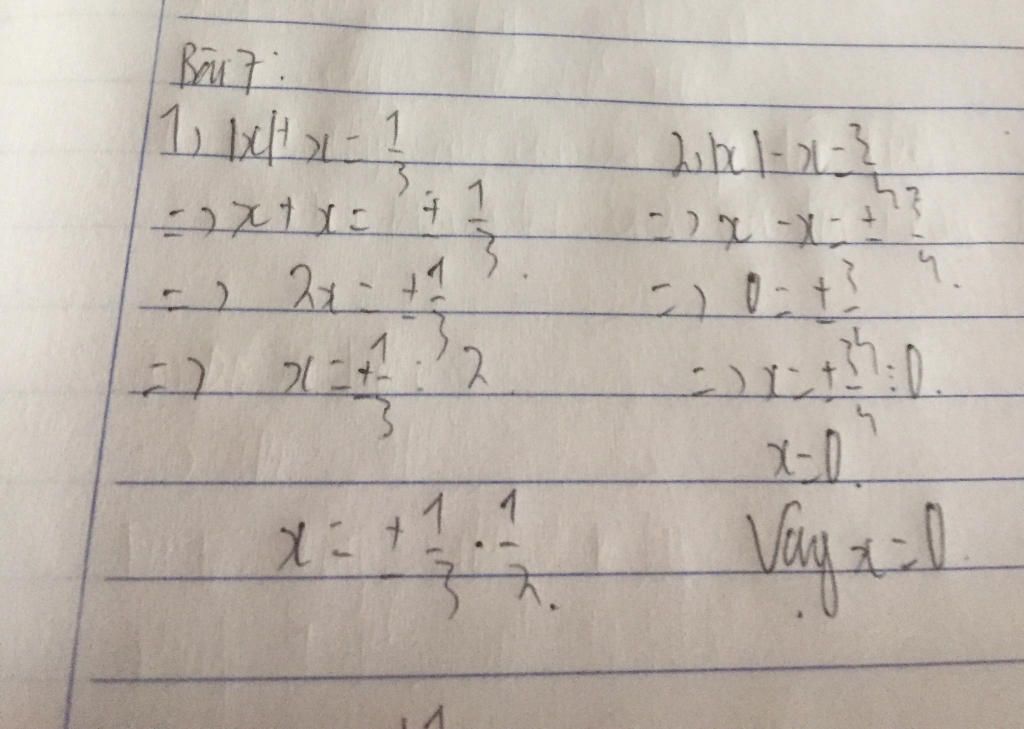 Bài 7:
1) |x| + x = 1/3
=> x + x = ± 1/3.
=> 2x = ± 1/3
=> x = ± 1/3 : 2
x = ± 1/3 . 1/2.
2) |x| - x = 3/4
=> x - x = ± 3/4.
=> 0 = ± 3/4
=> x = ± 3/4 : 0.
x = 0.
Vậy x = 0.